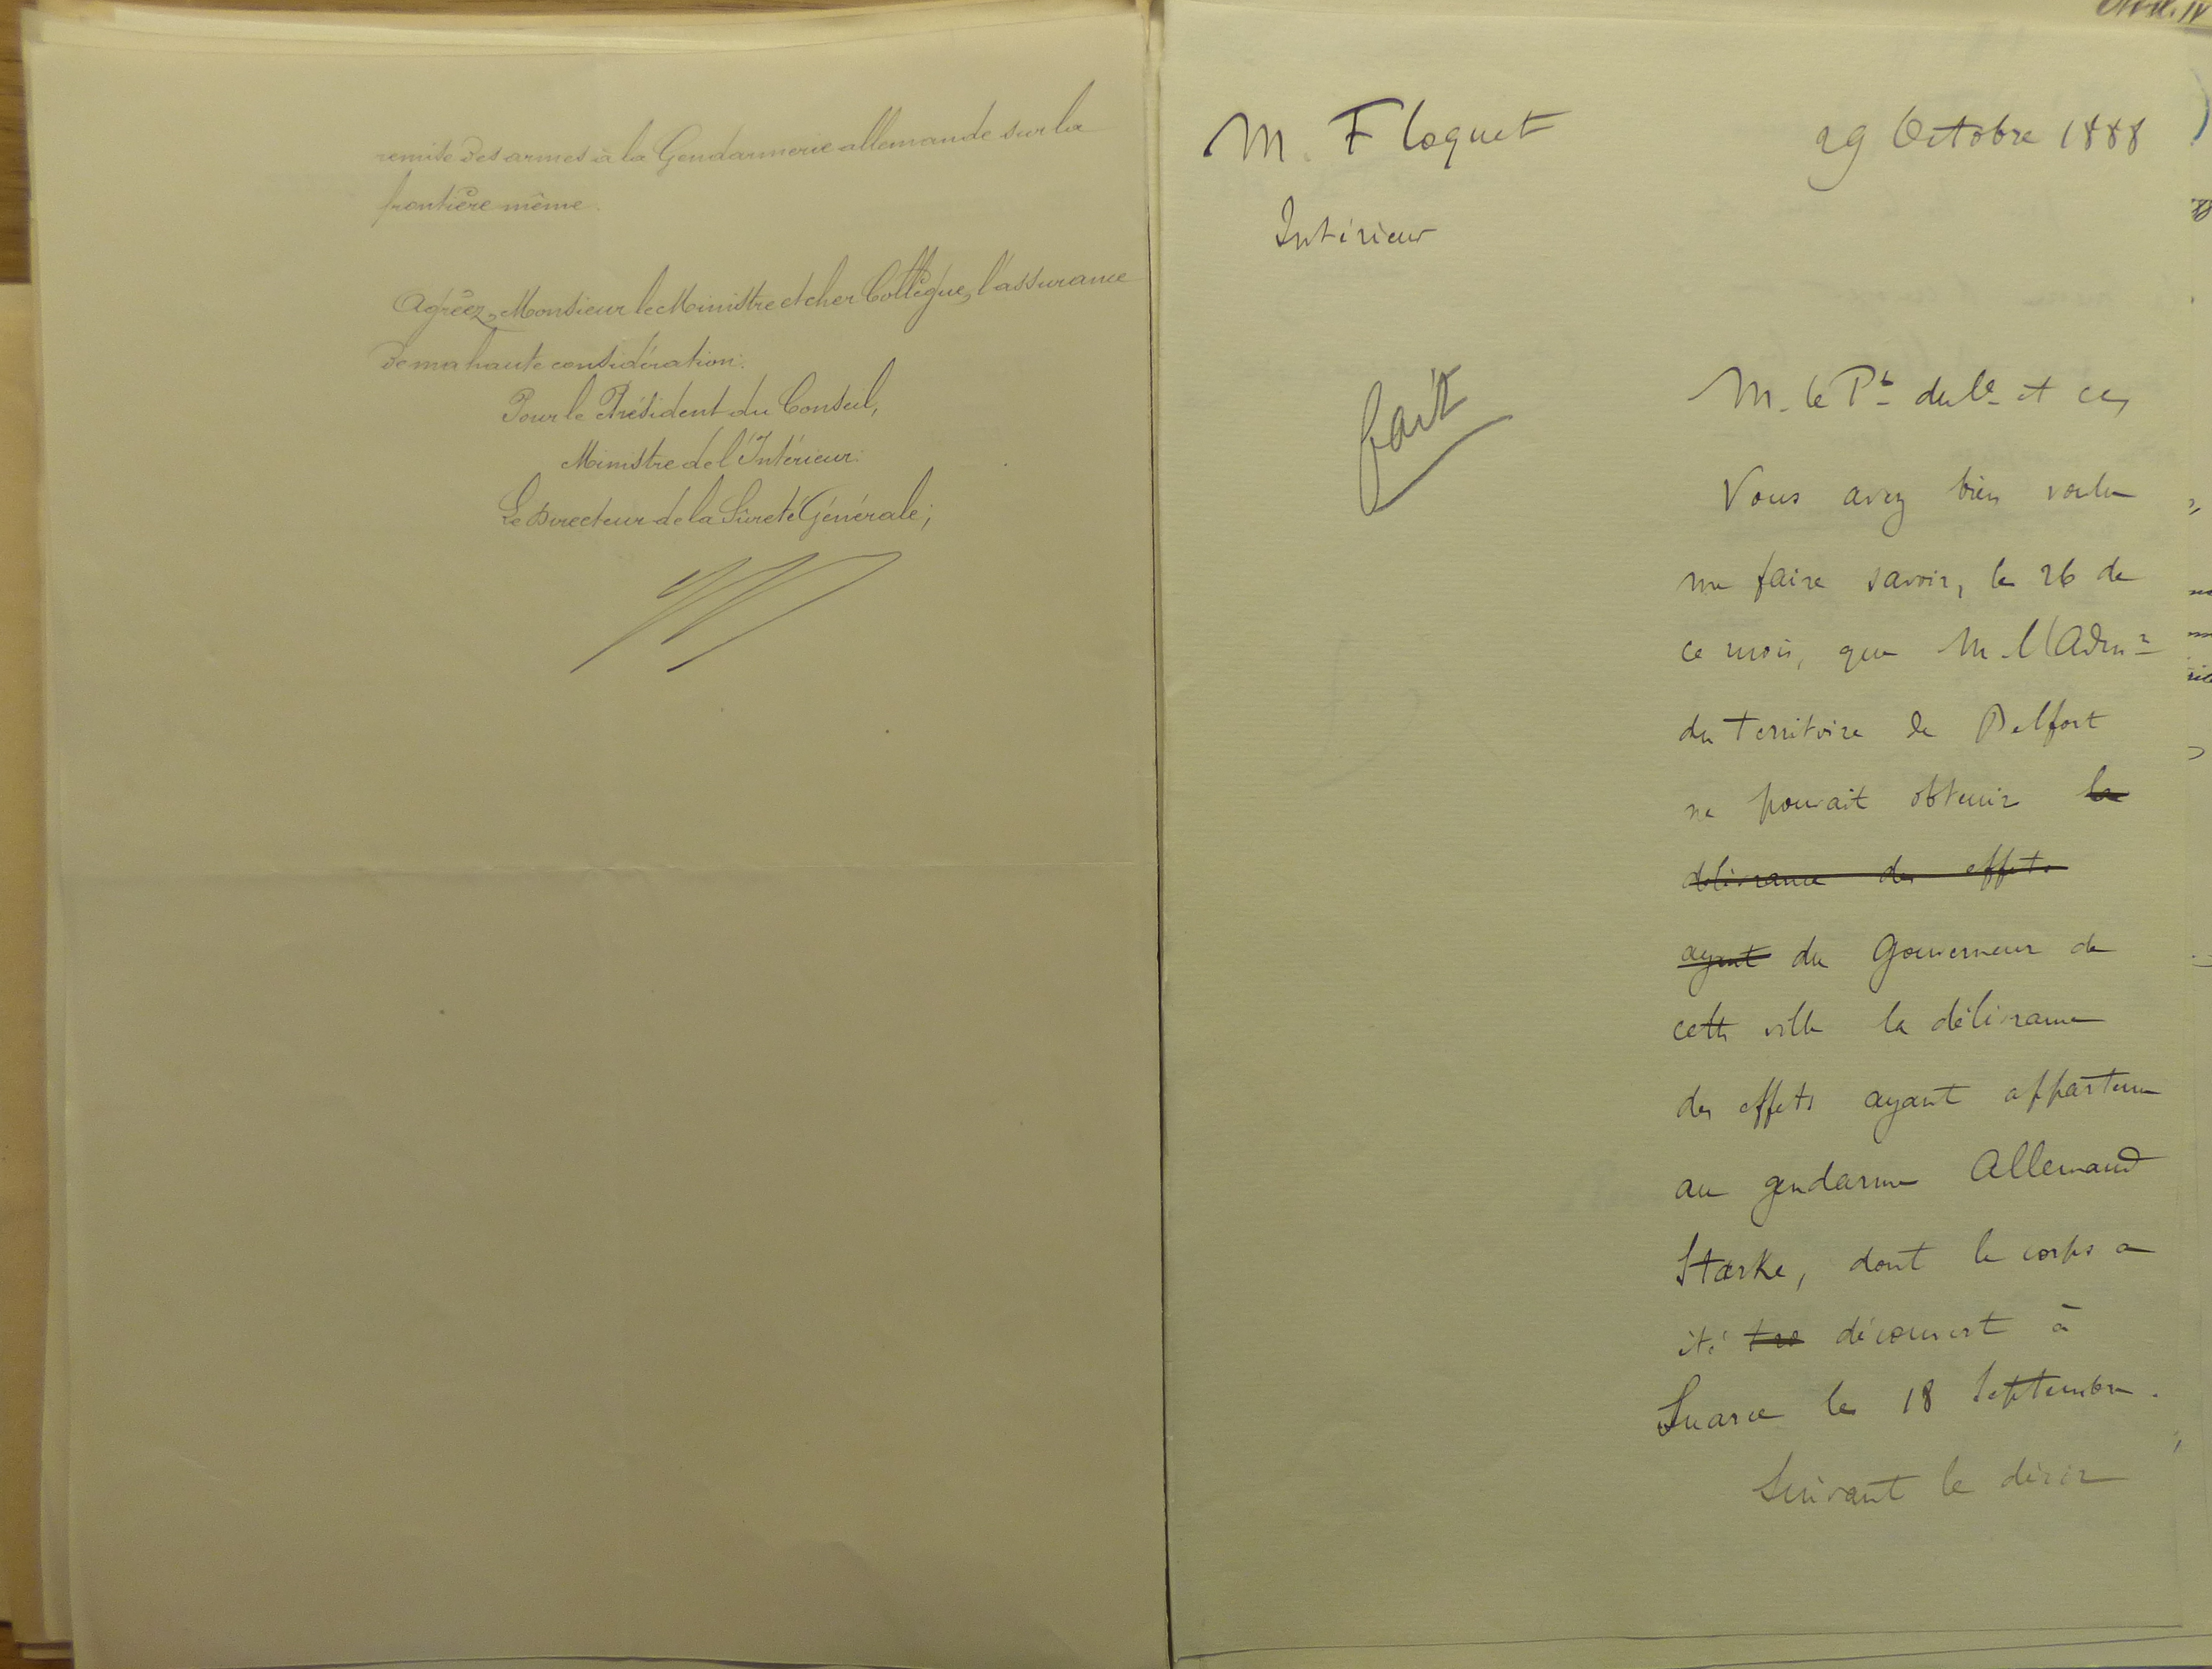 remise des armes à la Gendarmerie allemande sur la
frontière même.
Agréez, Monsieur le Ministre et cher Collègue, l'assurance
de ma haute considération.
Pour le Président du Conseil,
Ministre de l'Intérieur.
Le Directeur de la Sûreté Générale;
M. Floquet
29 Octobre 1888
Intérieur
fait
M. le Pt du Cl et ce,
Vous avez bien voulu
me faire savoir, le 26 de
ce mois, que M. l'Admr
du Territoire de Belfort
ne pouvait obtenir la
délivrance des effets
ayant du Gouverneur de
cette ville la délivrance
des effets ayant appartenu
au gendarme Allemand
Starke, dont le corps a
été découvert à
Suarce le 18 Septembre.
Suivant le désir